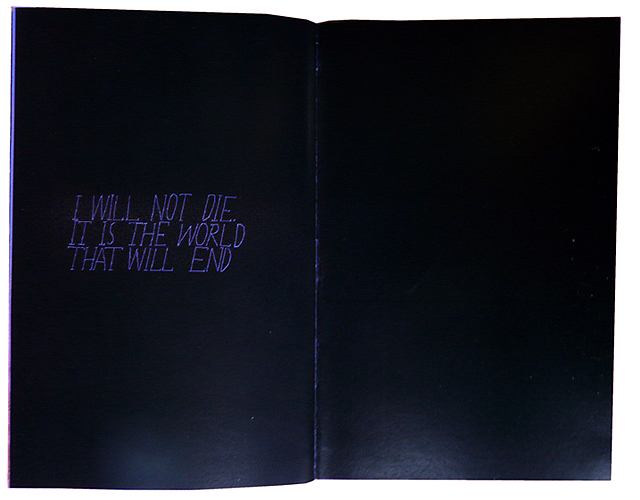 I WILL NOT DIE.
IT IS THE WORLD
THAT WILL END